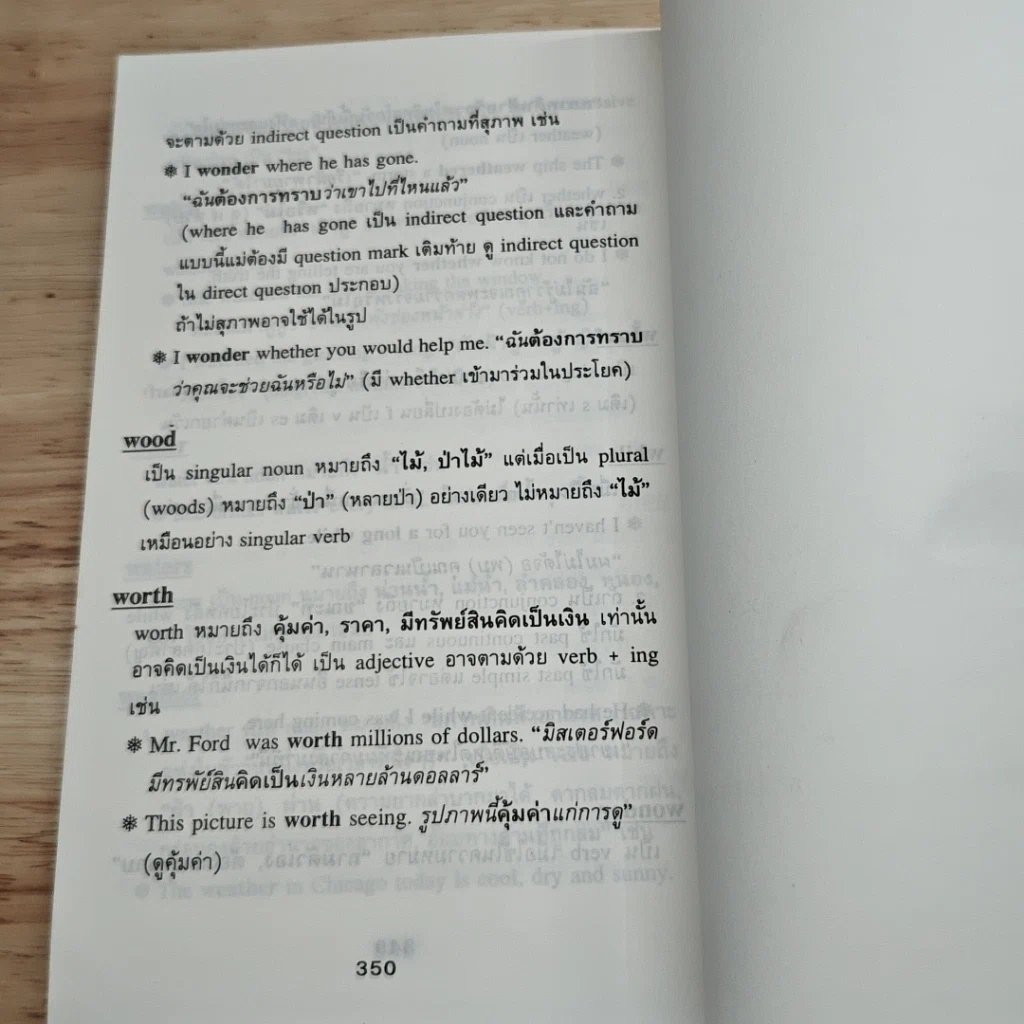 จะตามด้วย indirect question เป็นคำถามที่สุภาพ เช่น
❃ I wonder where he has gone.
“ฉันต้องการทราบว่าเขาไปที่ไหนแล้ว”
(where he has gone เป็น indirect question และคำถาม
แบบนี้แม่ต้องมี question mark เติมท้าย ดู indirect question
ใน direct question ประกอบ)
ถ้าไม่สุภาพอาจใช้ได้ในรูป
❃ I wonder whether you would help me. “ฉันต้องการทราบ
ว่าคุณจะช่วยฉันหรือไม่” (มี whether เข้ามาร่วมในประโยค)
wood
เป็น singular noun หมายถึง “ไม้, ป่าไม้” แต่เมื่อเป็น plural
(woods) หมายถึง “ป่า” (หลายป่า) อย่างเดียว ไม่หมายถึง “ไม้”
เหมือนอย่าง singular verb
worth
worth หมายถึง คุ้มค่า, ราคา, มีทรัพย์สินคิดเป็นเงิน เท่านั้น
อาจคิดเป็นเงินได้ก็ได้ เป็น adjective อาจตามด้วย verb + ing
เช่น
❃ Mr. Ford was worth millions of dollars. “มิสเตอร์ฟอร์ด
มีทรพัย์สินคิดเป็นเงินหลายล้านดอลลาร์”
❃ This picture is worth seeing. รูปภาพนี้คุ้มค่าแก่การดู”
(ดูคุ้มค่า)
350